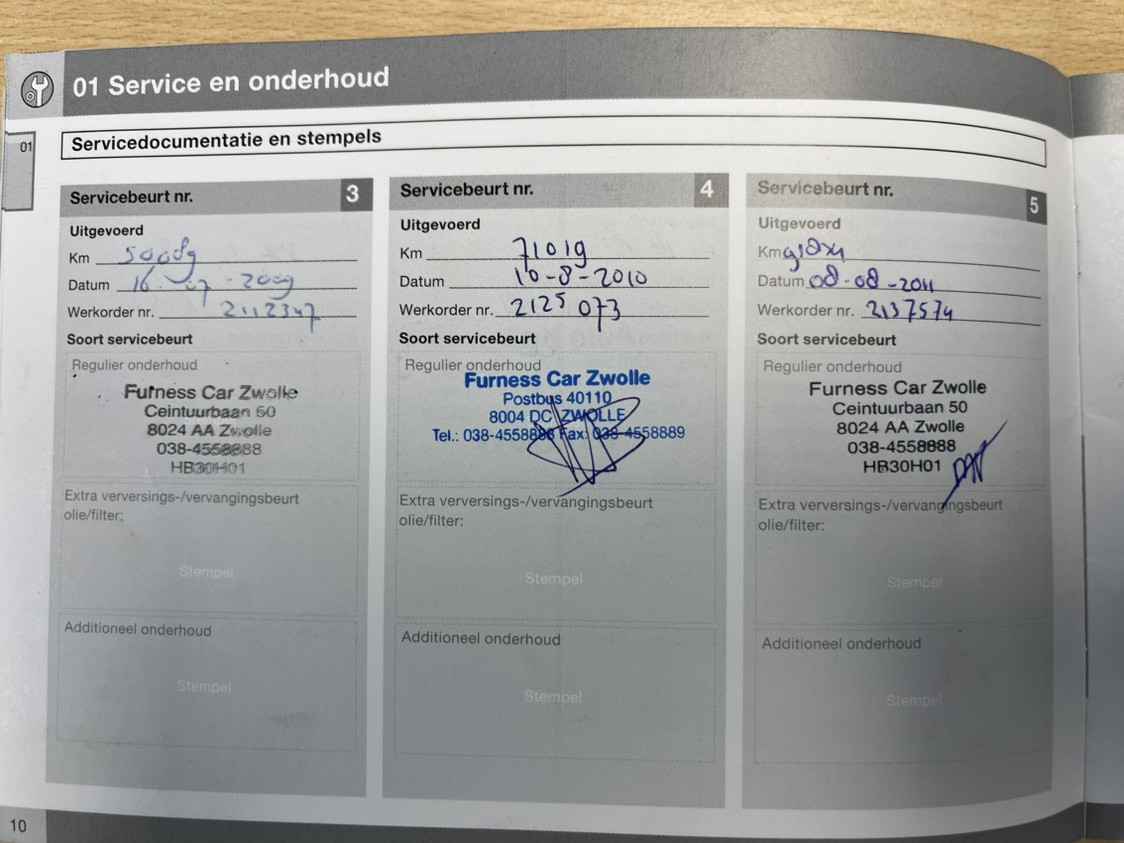 01 Service en onderhoud
01
Servicedocumentatie en stempels
Servicebeurt nr. 3
Uitgevoerd
Km 50089
Datum 16-07-2009
Werkorder nr. 2112347
Soort servicebeurt
Regulier onderhoud
Furness Car Zwolle
Ceintuurbaan 50
8024 AA Zwolle
038-4558888
HB30H01
Extra verversings-/vervangingsbeurt
olie/filter:
Stempel
Additioneel onderhoud
Stempel
Servicebeurt nr. 4
Uitgevoerd
Km 71019
Datum 10-8-2010
Werkorder nr. 2125073
Soort servicebeurt
Regulier onderhoud
Furness Car Zwolle
Postbus 40110
8004 DC ZWOLLE
Tel.: 038-4558888 Fax: 038-4558889
Extra verversings-/vervangingsbeurt
olie/filter:
Stempel
Additioneel onderhoud
Stempel
Servicebeurt nr. 5
Uitgevoerd
Km
Datum 08-08-2011
Werkorder nr. 2137574
Soort servicebeurt
Regulier onderhoud
Furness Car Zwolle
Ceintuurbaan 50
8024 AA Zwolle
038-4558888
HB30H01
Extra verversings-/vervangingsbeurt
olie/filter:
Stempel
Additioneel onderhoud
Stempel
10